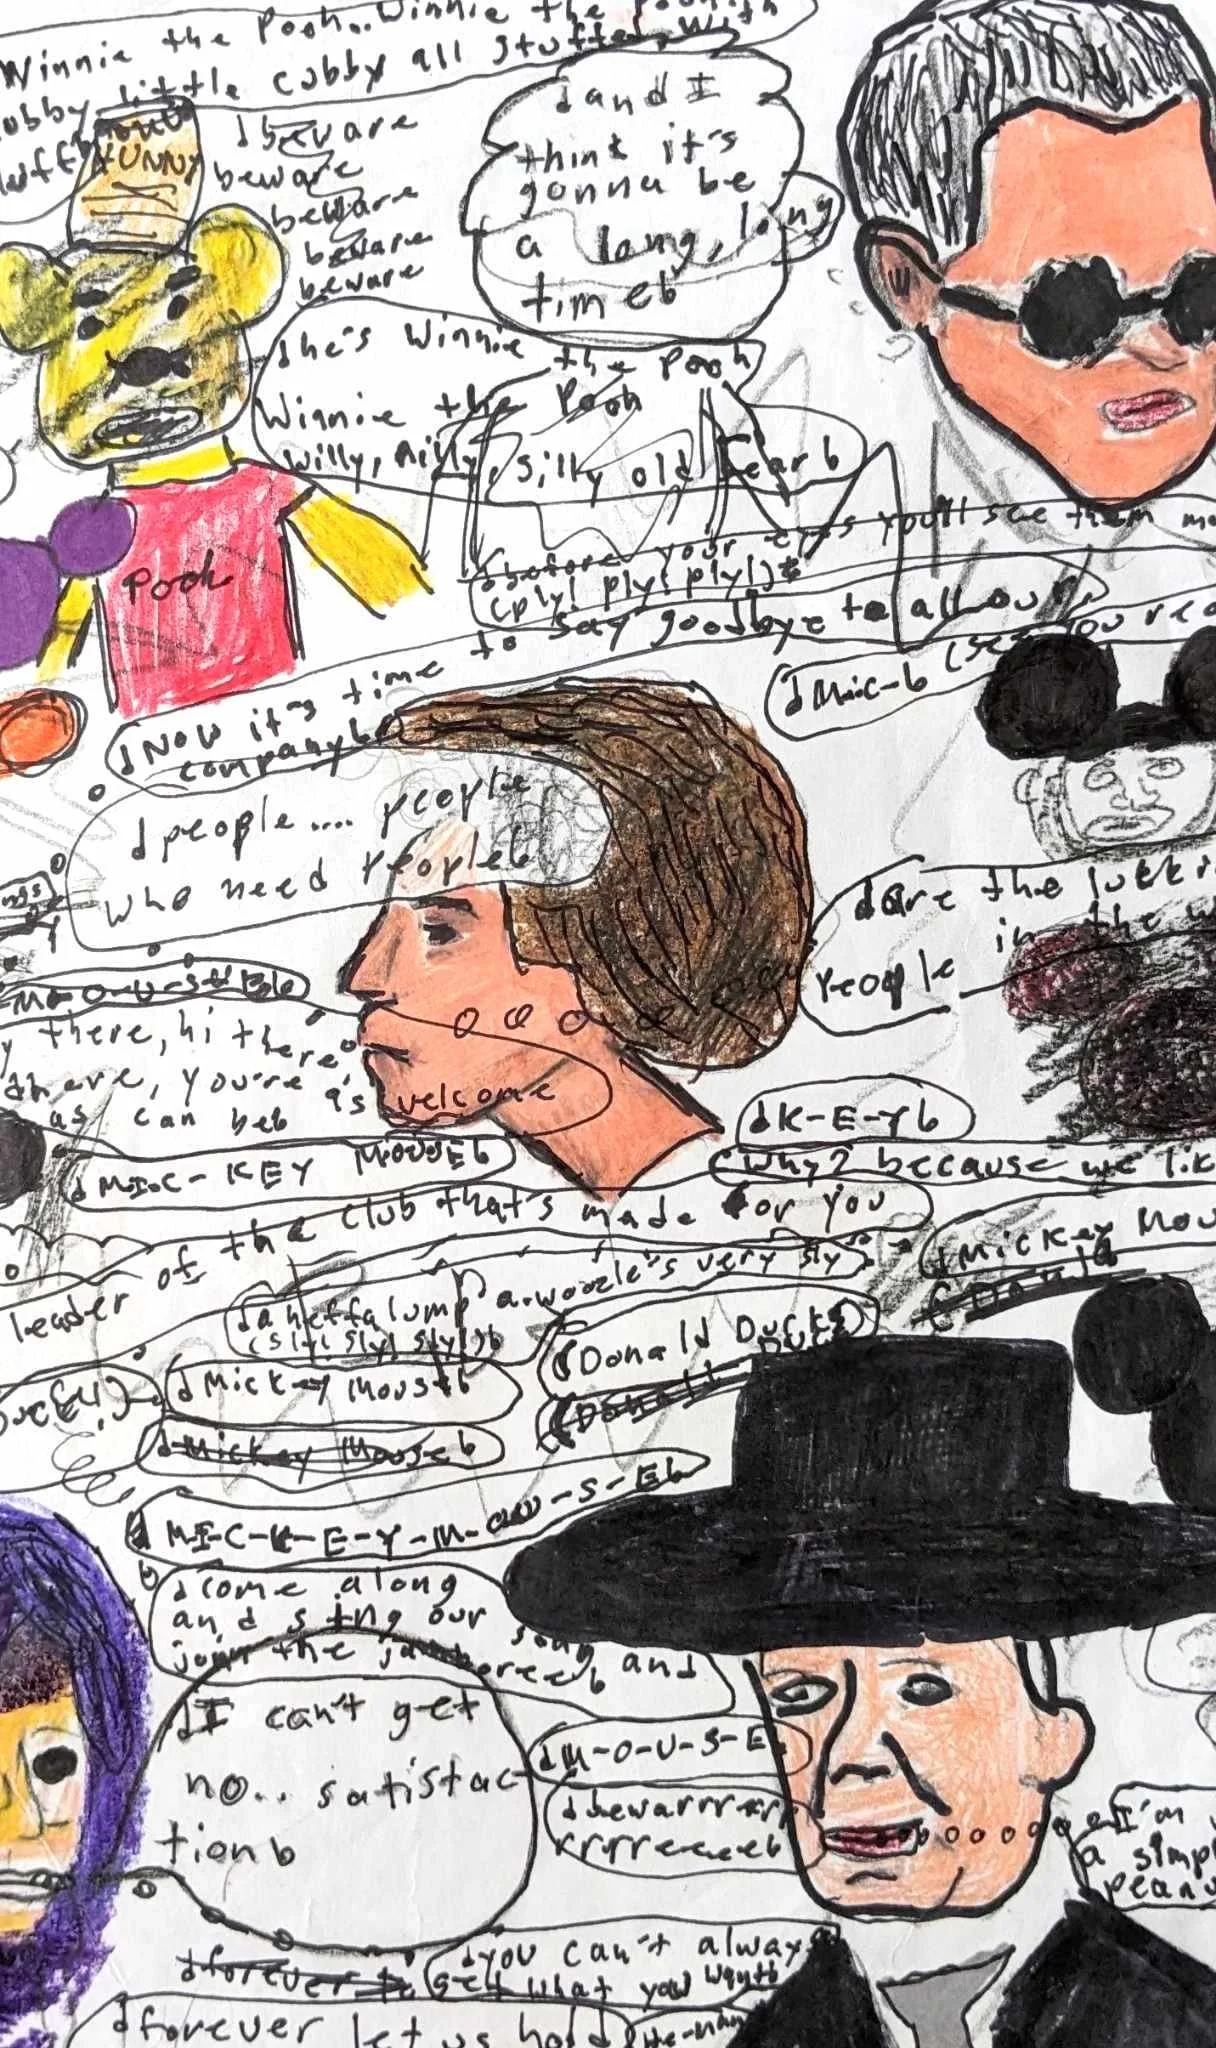 Winnie the Pooh.. Winnie the Pooh.
little cubby all stuffed with
HUNNY
beware
beware
beware
beware
beware
and I
think it's
gonna be
a long, long
time
he's Winnie
the Pooh
Winnie the Pooh
willy, nilly, silly old bear
before your eyes you'll see them
(ply! ply! ply!)
Pooh
Now it's time to say goodbye to all our
company
Mic- (see
people.... people
who need people
are the
people in the
M-O-U-S-E
there, hi there
there, you're as welcome
as can be
K-E-Y
(why? because we
MIC-KEY MOUSE
leader of the club that's made for you
Mickey
a heffalump a woozle's very sly
(sly! sly! sly!)
(Donald Duck!)
Mickey Mouse
Mickey Mouse
M-I-C-K-E-Y-M-O-U-S-E
come along
and sing our song and
join the jamboree
I can't get
no.. satisfac
tion
M-O-U-S-E
bewarrrrrr
rrrreeeee
I'm
a simple
forever
you can't always
get what you want
forever let us hold